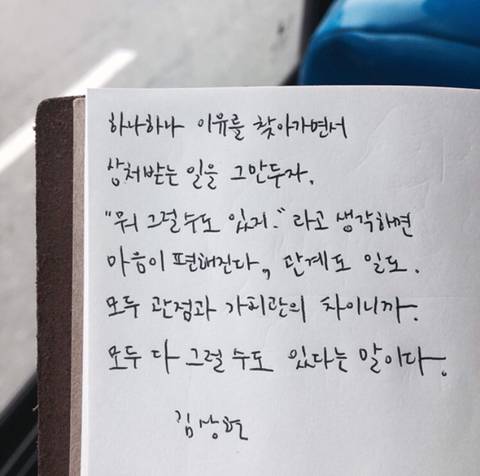 하나하나 이유를 찾아가면서
상처받는 일을 그만두자.
"뭐 그럴 수도 있지." 라고 생각하면
마음이 편해진다, 관계도 일도.
모두 관점과 가치관의 차이니까.
모두 다 그럴 수도 있다는 말이다.
김상현